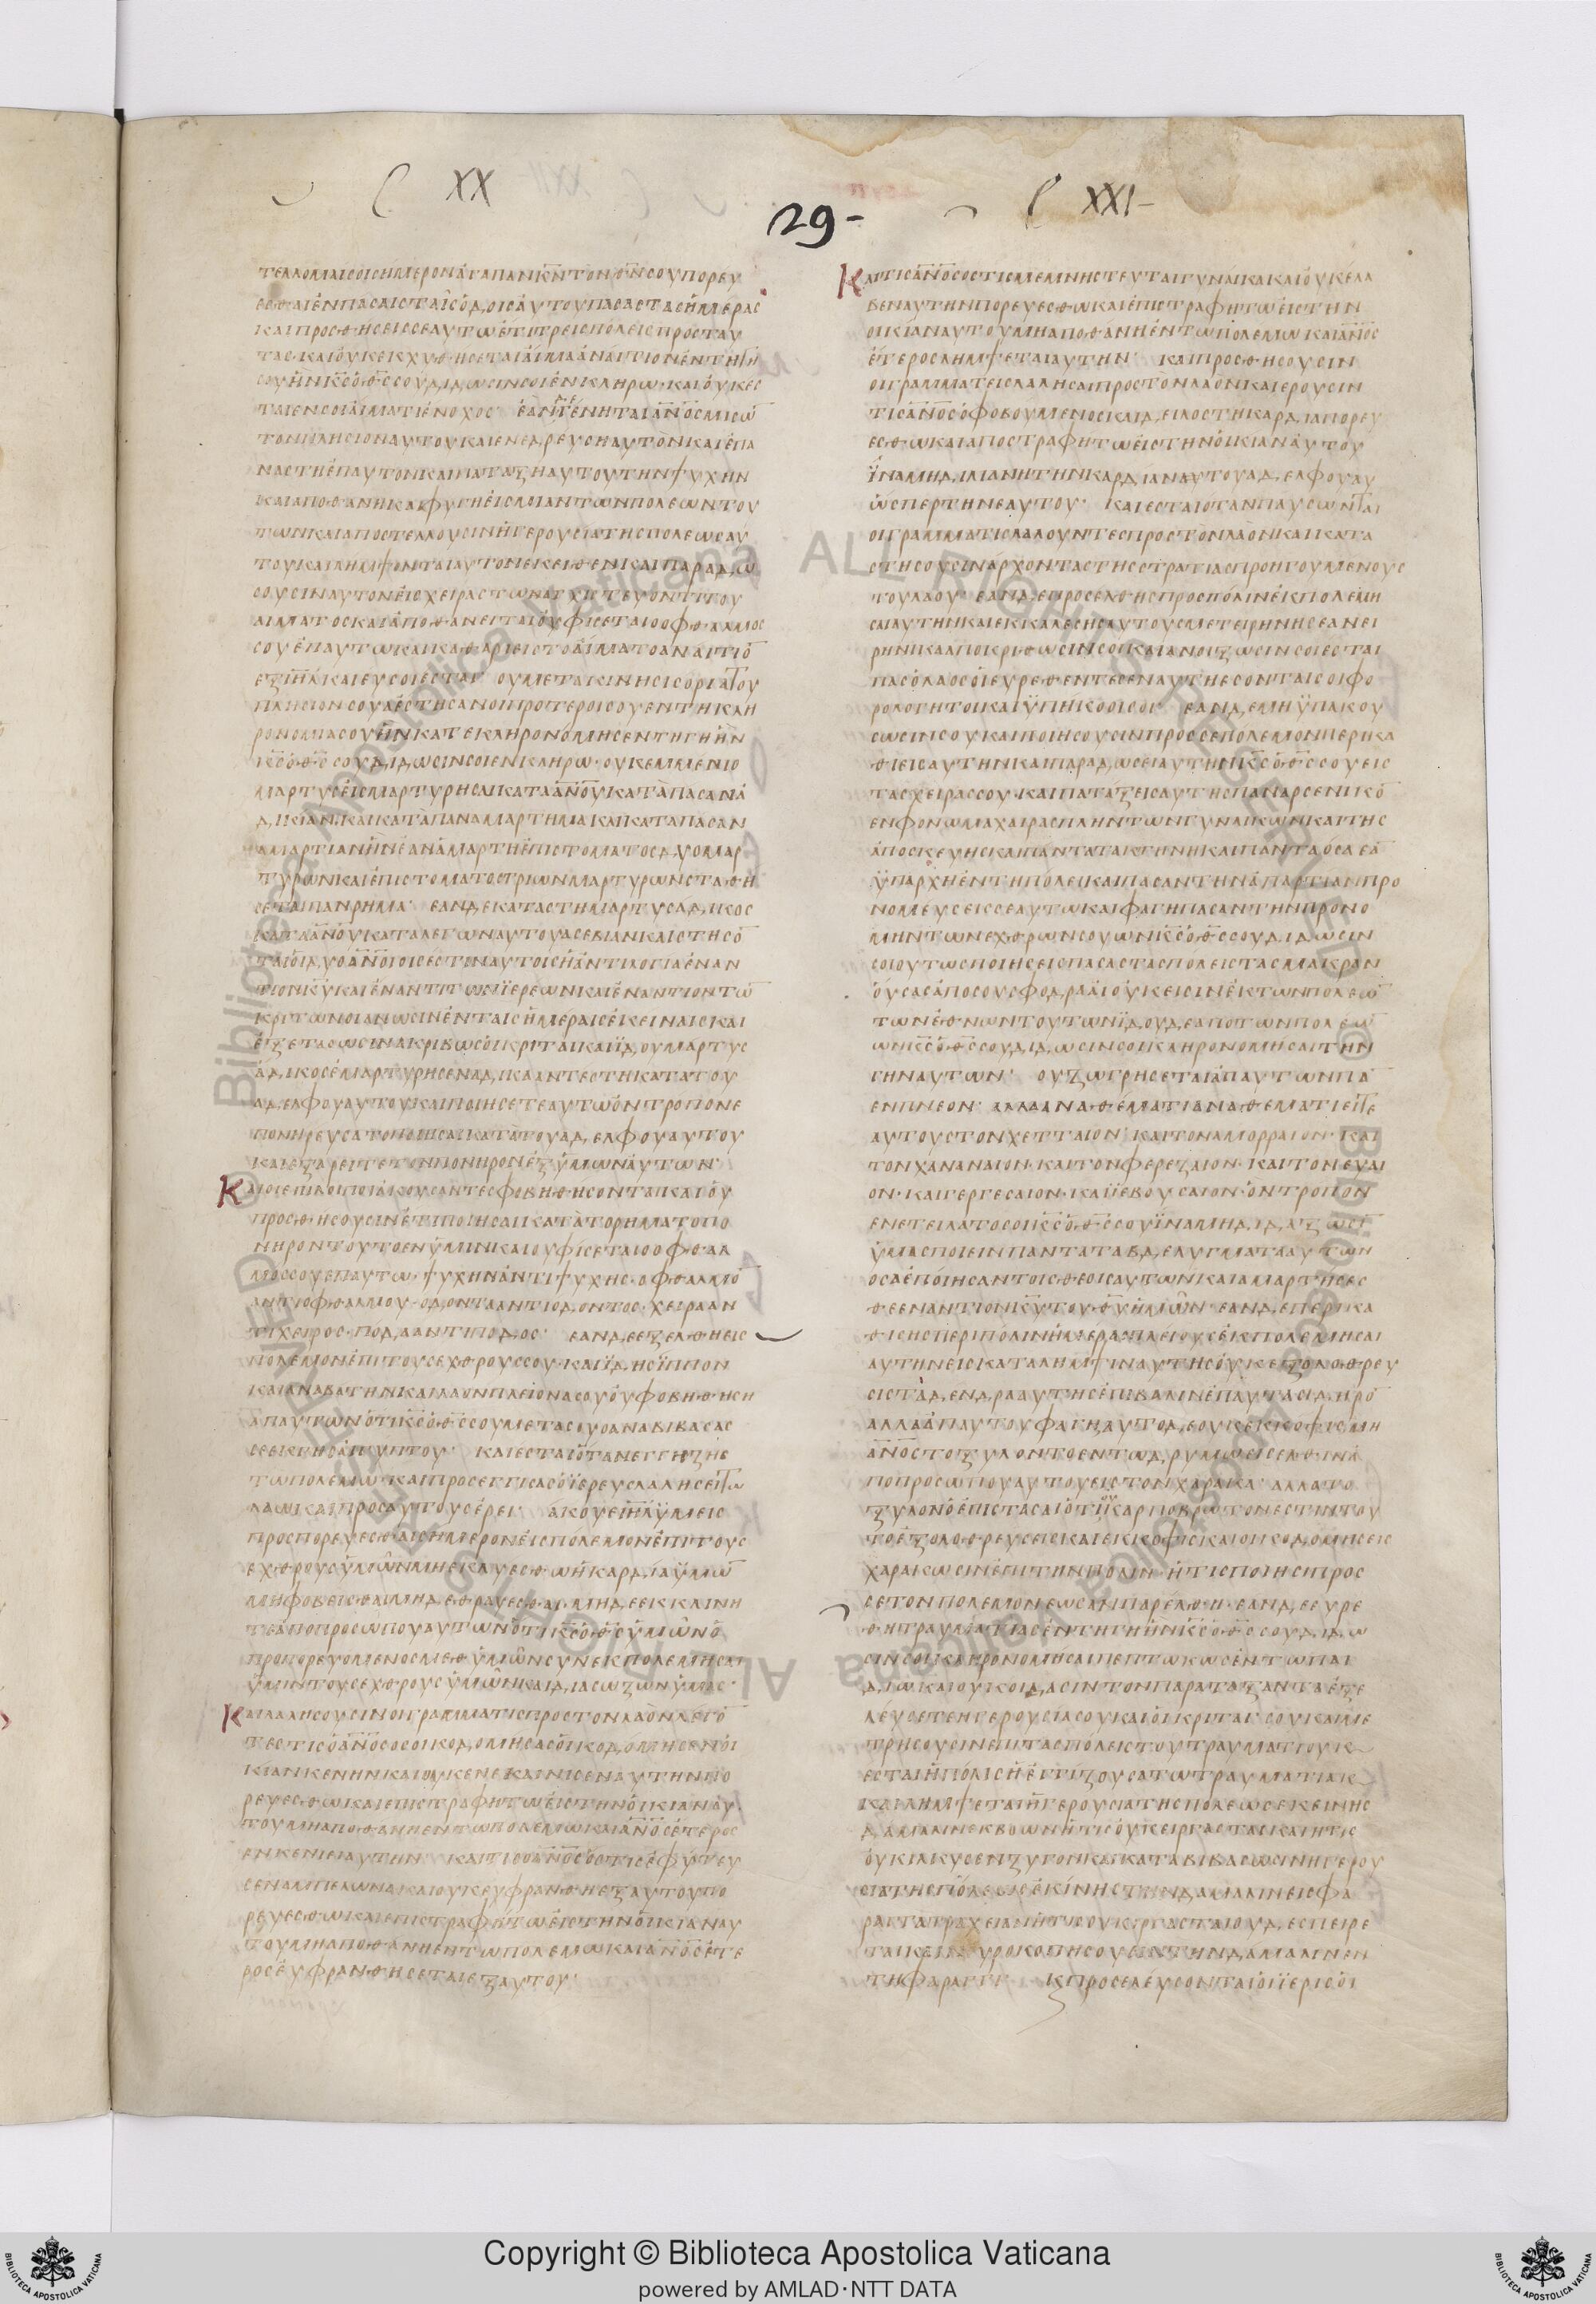 XX
XXI
29-
τελλομαισοισημεροναγαπανκ̅ν̅τονθ̅ν̅σουπορευ
εσθαιενπασαιςταιςοδοιςαυτουπαςαςταςημερας
καιπροσθησειςσεαυτωετιτρειςπολειςπροςταυ
ταςκαιουκεκχυθησεταιαιμααναιτιονεντηγη
σουηνκ̅ς̅οθ̅ς̅σουδιδωσινσοιενκληρωκαιουκες
ταιενσοιαιματιενοχοςεανγενηταια̅ν̅ο̅ς̅μισω̅
τονπλησιοναυτουκαιενεδρευσηαυτονκαιεπα
ναστηεπαυτονκαιπαταξηαυτουτηνψυχην
καιαποθανηκαιφυγηειςμιαντωνπολεωντου
τωνκαιαποστελλουσινηγερουσιατηςπολεωςαυ
τουκαιλημψονταιαυτονεκειθενκαιπαραδω
σουσιναυτονειςχειραςτωναγχιστευοντιτου
αιματοςκαιαποθανειταιουφισεταιοοφθαλμος
σουεπαυτωκαικαθαριειςτοαιματοαναιτιο̅
εξι̅η̅λ̅καιευσοιεσταιουμετακινησιςοριατου
πλησιονσουαεστησανοιπροτεροισουεντηκλη
ρονομιασουηνκατεκληρονομησεντηγηην
κ̅ς̅οθ̅ς̅σουδιδωσινσοιενκληρωουκεμμενιο
μαρτυςειςμαρτυρησαικαταα̅ν̅ο̅υ̅καταπασανα
δικιανκαικαταπαναμαρτημακαικαταπασαν
αμαρτιανηνεαναμαρτηεπιστοματοςδυομαρ
τυρωνκαιεπιστοματοςτριωνμαρτυρωνσταθη
σεταιπανρημαεανδεκαταστημαρτυςαδικος
καταα̅ν̅ο̅υ̅καταλεγωναυτουασεβιανκαιστησο̅
ταιοιδυοα̅ν̅ο̅ι̅οιςεστιναυτοιςηαντιλογιαεναν
τιονκ̅υ̅καιεναντιτωνιερεωνκαιεναντιοντω̅
κριτωνοιανωσινενταιςημεραιςεκειναιςκαι
εξετασωσινακριβωςοικριταικαιιδουμαρτυς
αδικοςεμαρτυρησεναδικααντεστηκατατου
αδελφουαυτουκαιποιησετεαυτωοντροπονε
πονηρευσατοποιησαικατατουαδελφουαυτου
καιεξαρειτετονπονηρονεξυμωναυτων
Καιοιεπιλοιποιακουσαντεςφοβηθησονταικαιου
προσθησουσινετιποιησαικατατορηματοπο
νηροντουτοενυμινκαιουφισεταιοοφθαλ
μοςσουεπαυτωψυχηναντιψυχηςοφθαλμο̅
αντιοφθαλμουοδοντααντιοδοντοςχειρααν
τιχειροςποδααντιποδοςεανδεεξελθηεις
πολεμονεπιτουςεχθρουςσουκαιιδηςιππον
καιαναβατηνκαιλαονπλειονασουουφοβηθηση
απαυτωνοτικ̅ς̅οθ̅ς̅σουμετασουοαναβιβασας
σεεκγηςαιγυπτουκαιεσταιοτανεγγησης
τωπολεμωκαιπροσεγγισαςοιερευςλαλησειτω
λαωκαιπροςαυτουςερειακουει̅η̅λ̅υμεις
προσπορευεσθαισημερονειςπολεμονεπιτους
εχθρουςυμωνμηεκλυεσθωηκαρδιαυμω̅
μηφοβεισθαιμηδεθραυεσθαιμηδεεκκλινη
τεαποπροσωπουαυτωνοτικ̅ς̅οθ̅ς̅υμωνο
προπορευομενοςμεθυμωνσυνεκπολεμησαι
υμιντουςεχθρουςυμωνκαιδιασωζωνυμας
Καιλαλησουσινοιγραμματιςπροςτονλαονλεγο̅
τεςτιςοα̅ν̅ο̅ς̅οςοικοδομησαςοικοδομησενοι
κιανκενηνκαιουκενεκαινισεναυτηνπο
ρευεσθωκαιεπιστραφητωειςτηνοικιαναυ
τουμηαποθανηεντωπολεμωκαια̅ν̅ο̅ς̅ετερος
ενκενιειαυτηνκαιτιςοα̅ν̅ο̅ς̅οστιςεφυτευ
σεναμπελωνακαιουκευφρανθηεξαυτουπο
ρευεσθωκαιεπιστραφητωειςτηνοικιαναυ
τουμηαποθανηεντωπολεμωκαια̅ν̅ο̅ς̅ετε
ροςευφρανθησεταιεξαυτου
Καιτιςα̅ν̅ο̅ς̅οστιςμεμνηστευταιγυναικακαιουκελα
βεναυτηνπορευεσθωκαιεπιστραφητωειςτην
οικιαναυτουμηαποθανηεντωπολεμωκαια̅ν̅ο̅ς̅
ετεροςλημψεταιαυτηνκαιπροσθησουσιν
οιγραμματειςλαλησαιπροςτονλαονκαιερουσιν
τιςα̅ν̅ο̅ς̅οφοβουμενοςκαιδειλοςτηκαρδιαπορευ
εσθωκαιαποστραφητωειςτηνοικιαναυτου
ιναμηδιλιανητηνκαρδιαντουαδελφουαυ
ωσπερτηνεαυτουκαιεσταιοτανπαυσωνται
οιγραμματιςλαλουντεςπροςτονλαονκαικατα
στησουσιναρχονταςτηςστρατιαςπροηγουμενους
τουλαουεανδεπροσελθηςπροςπολινεκπολεμη
σαιαυτηνκαιεκκαλεσηςαυτουςμετειρηνηςεανει
ρηνικααποκριθωσινσοικαιανοιξωσινσοιεσται
παςολαοςοιευρεθεντεςεναυτηεσονταισοιφο
ρολογητοικαιυπηκοοισοιεανδεμηυπακου
σωσινσουκαιποιησουσινπροςσεπολεμονπερικα
θιειςαυτηνκαιπαραδωσειαυτηνκ̅ς̅οθ̅ς̅σουεις
ταςχειραςσουκαιπαταξειςαυτηςπαναρσενικο̅
ενφονωμαχαιραςπληντωνγυναικωνκαιτης
αποσκευηςκαιπαντατακτηνηκαιπανταοσαεα̅
υπαρχηεντηπολεικαιπασαντηναπαρτιανπρο
νομευσειςσεαυτωκαιφαγηπασαντηνπρονο
μηντωνεχθρωνσουωνκ̅ς̅οθ̅ς̅σουδιδωσιν
σοιουτωςποιησειςπασαςταςπολειςταςμακραν
ουσαςαποσουσφοδρααιουκεισινεκτωνπολεω̅
τωνεθνωντουτωνιδουδεαποτωνπολεω̅
ωνκ̅ς̅οθ̅ς̅σουδιδωσινσοικληρονομησαιτην
γηναυτωνουζωγρησεταιαπαυτωνπα̅
ενπνεοναλλααναθεματιαναθεματιειτε
αυτουςτονχετταιονκαιτοναμορραιονκαι
τονχαναναιονκαιτονφερεζαιονκαιτονευαι
ονκαιγεργεσαιονκαιιεβουσαιονοντροπον
ενετειλατοσοικ̅ς̅οθ̅ς̅σουιναμηδιδαξωσι̅
υμαςποιεινπανταταβδελυγματααυτων
οσαεποιησαντοιςθεοιςαυτωνκαιαμαρτησες
θεεναντιονκ̅υ̅τουθ̅υ̅ημωνεανδεπερικα
θισηςπεριπολινημεραςπλειουςεκπολεμησαι
αυτηνειςκαταλημψιναυτηςουκεξολοθρευ
σιςταδενδρααυτηςεπιβαλινεπαυτασιδηρο̅
αλλααπαυτουφαγηαυτοδεουκεκκοψιςμη
α̅ν̅ο̅ς̅τοξυλοντοεντωδρυμωεισελθινα
ποπροσωπουαυτουειςτονχαρακααλλατο
ξυλονοεπιστασαιοτιουκαρποβρωτονεστιντου
τοεξολοθρευσειςκαιεκκοψιςκαιοικοδομησεις
χαρακωσινεπιτηνπολινητιςποιηςιπρος
σετονπολεμονεωςανπαρελθηεανδεευρε
θητραυματιαςεντηγηηνκ̅ς̅οθ̅ς̅σουδιδω
σινσοικληρονομησαιπεπτωκωςεντωπαι
διωκαιουκοιδασιντονπαραταξανταεξε
λευσετεηγερουσιασουκαιοικριταισουκαιμε
τρησουσινεπιταςπολειςτουτραυματιουκ
εσταιηπολιςηεγγιζουσατωτραυματιακ
καιλημψεταιηγερουσιατηςπολεωςεκεινης
δαμαλινεκβοωνητιςουκειργασταικαιητις
ουκιλκυσενζυγονκαικαταβιβασωσινηγερου
σιατηςπολεωςεκινηςτηνδαμαλινειςφα
ραγγατραχειανητιςουκιργασταιουδεσπειρε
ταικαινευροκοπησουσιντηνδαμαλινεν
τηφαραγγικπροσελευσονταιοιιερισοι
Copyright © Biblioteca Apostolica Vaticana
powered by AMLAD·NTT DATA